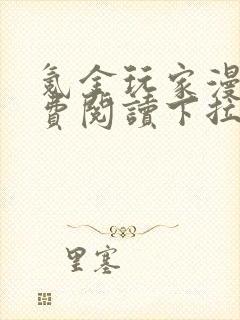 氪金玩家漫
費閱讀下拉
里塞